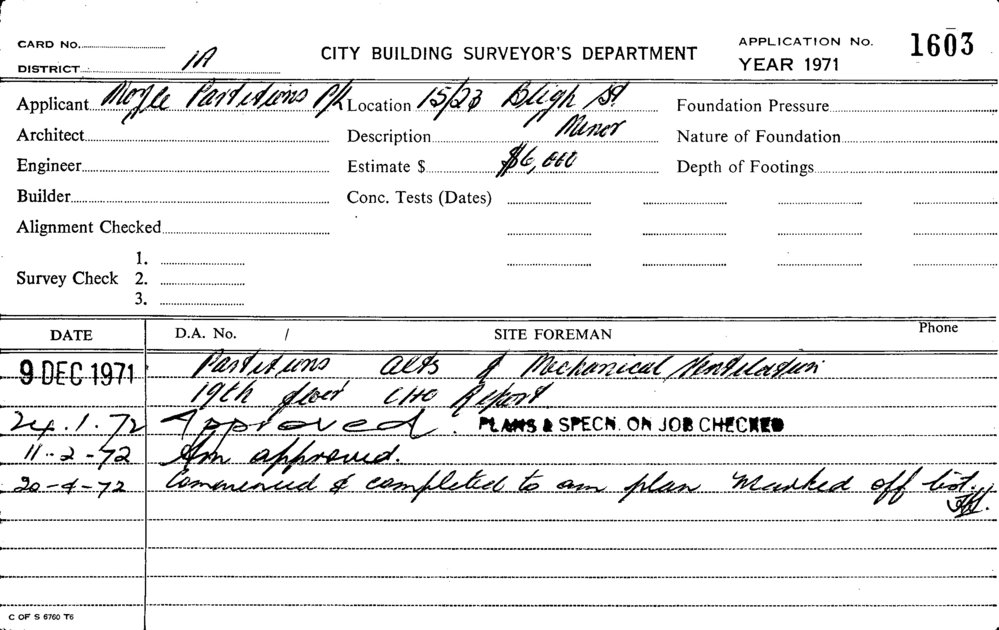 CARD No.
CITY BUILDING SURVEYOR'S DEPARTMENT
APPLICATION No. 1603
DISTRICT 1A
YEAR 1971
Applicant Moyle Partitions P/L Location 15/23 Bligh St. Foundation Pressure
Architect Description Minor Nature of Foundation
Engineer Estimate $ $6,000 Depth of Footings
Builder Conc. Tests (Dates)
Alignment Checked
1.
Survey Check 2.
3.
DATE D.A. No. / SITE FOREMAN Phone
9 DEC 1971 Partitions alts & Mechanical Ventilation
19th floor CHO Report
24.1.72 Approved. PLANS & SPECN. ON JOB CHECKED
11-2-72 Am approved.
20-4-72 Commenced & completed to am plan Marked off list.
C OF S 6760 T6